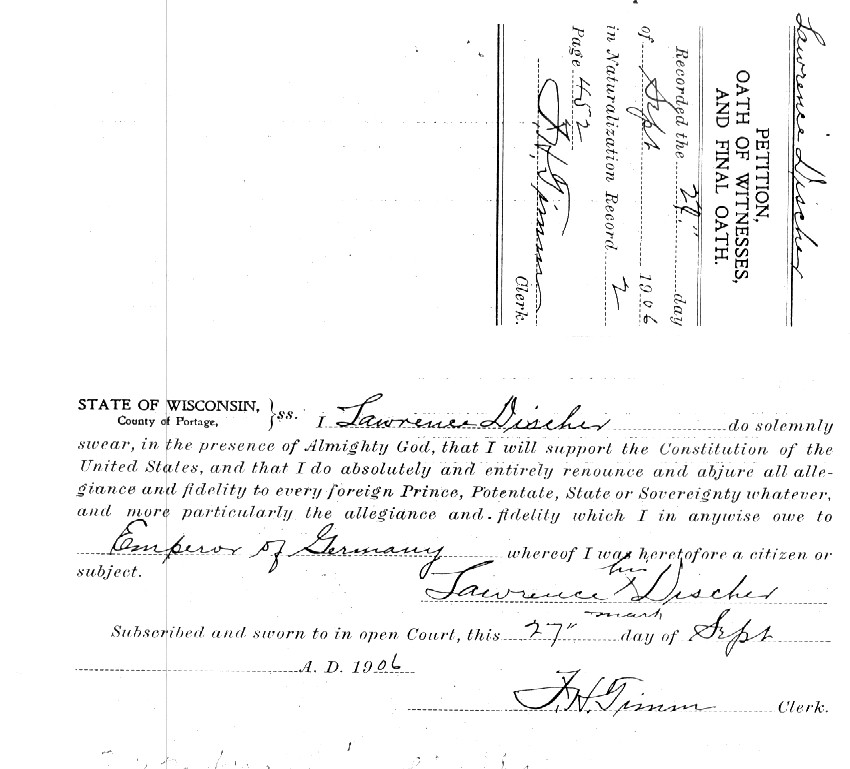 Lawrence Discher
PETITION,
OATH OF WITNESSES,
AND FINAL OATH.
Recorded the 29" day
of Sept 1906
in Naturalization Record 2
Page 452
F. H. Timm
Clerk.
STATE OF WISCONSIN,
County of Portage,
}ss. I Lawrence Discher do solemnly
swear, in the presence of Almighty God, that I will support the Constitution of the
United States, and that I do absolutely and entirely renounce and abjure all alle-
giance and fidelity to every foreign Prince, Potentate, State or Sovereignty whatever,
and more particularly the allegiance and fidelity which I in anywise owe to
Emperor of Germany whereof I was heretofore a citizen or
subject.
his
Lawrence X Discher
mark
Subscribed and sworn to in open Court, this 27" day of Sept
A. D. 1906
F. H. Timm Clerk.